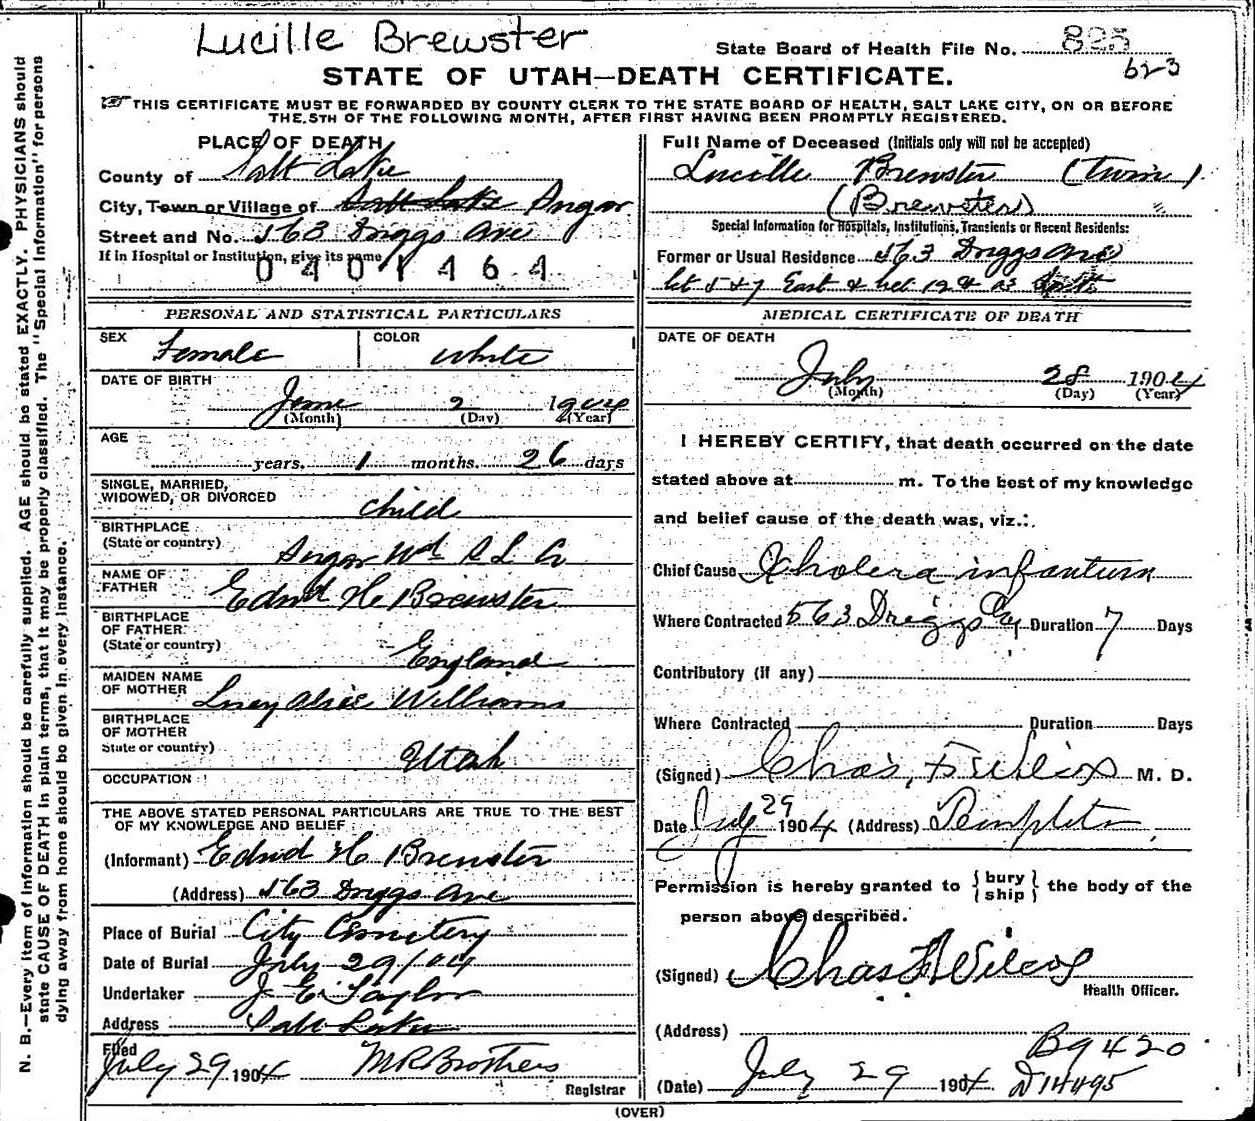 Lucille Brewster
State Board of Health File No. 825
623
STATE OF UTAH—DEATH CERTIFICATE.
THIS CERTIFICATE MUST BE FORWARDED BY COUNTY CLERK TO THE STATE BOARD OF HEALTH, SALT LAKE CITY, ON OR BEFORE
THE 5TH OF THE FOLLOWING MONTH, AFTER FIRST HAVING BEEN PROMPTLY REGISTERED.
PLACE OF DEATH
County of Salt Lake
City, Town or Village of Salt Lake Sugar
Street and No. 563 Driggs Ave
If in Hospital or Institution, give its name
0401464
PERSONAL AND STATISTICAL PARTICULARS
SEX Female COLOR White
DATE OF BIRTH
June 2 1904
(Month) (Day) (Year)
AGE
years. 1 months. 26 days
SINGLE, MARRIED,
WIDOWED, OR DIVORCED
child
BIRTHPLACE
(State or country)
Sugar Wd S L Co
NAME OF
FATHER Edwd H Brewster
BIRTHPLACE
OF FATHER
(State or country)
England
MAIDEN NAME
OF MOTHER Lucy Alice Williams
BIRTHPLACE
OF MOTHER
State or country)
Utah
OCCUPATION
THE ABOVE STATED PERSONAL PARTICULARS ARE TRUE TO THE BEST
OF MY KNOWLEDGE AND BELIEF
(Informant) Edwd H Brewster
(Address) 563 Driggs Ave
Place of Burial City Cemetery
Date of Burial July 29/04
Undertaker J E Taylor
Address Salt Lake
Filed
July 29 1904 M R Brothers
Registrar
Full Name of Deceased (Initials only will not be accepted)
Lucille Brewster (Twin)
(Brewster)
Special Information for Hospitals, Institutions, Transients or Recent Residents:
Former or Usual Residence 563 Driggs Ave
bet 5 & 7 East & bet 12 & 13 South
MEDICAL CERTIFICATE OF DEATH
DATE OF DEATH
July 28 1904
(Month) (Day) (Year)
I HEREBY CERTIFY, that death occurred on the date
stated above at m. To the best of my knowledge
and belief cause of the death was, viz.:
Chief Cause Cholera infantum
Where Contracted 563 Driggs Duration 7 Days
Contributory (if any)
Where Contracted Duration Days
(Signed) Chas. F Wilcox M. D.
Date July 29 1904 (Address) Templeton
Permission is hereby granted to { bury ship } the body of the
person above described.
(Signed) Chas F Wilcox
Health Officer.
(Address)
B9420
(Date) July 29 1904 D14495
(OVER)
N. B.—Every item of information should be carefully supplied. AGE should be stated EXACTLY. PHYSICIANS should
state CAUSE OF DEATH in plain terms, that it may be properly classified. The "Special Information" for persons
dying away from home should be given in every instance.